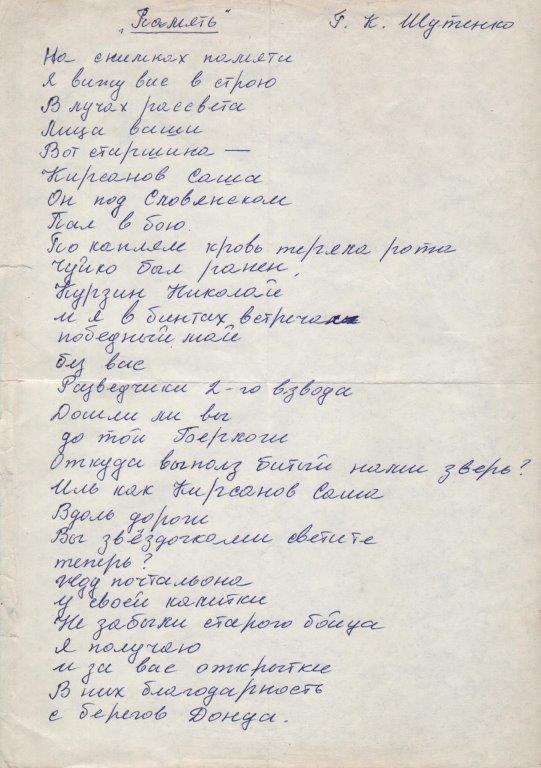 "Память" Г. К. Шутенко
На снимках памяти
Я вижу вас в строю
В лучах рассвета
Лица ваши
Вот старшина —
Кирсанов Саша
Он под Словянском
Пал в бою.
По каплям кровь теряла рота
Чуйко был ранен,
Курзин Николай
и я в бинтах встречал
победный май
без вас
Разведчики 2-го взвода
Дошли ли вы
до той Берлоги
Откуда выполз битый нами зверь?
Иль как Кирсанов Саша
Вдоль дороги
Вы звёздочками светите
теперь?
жду почтальона
у своей калитки
Не забыли старого бойца
Я получаю
и за вас открытки
В них благодарность
с берегов Донца.